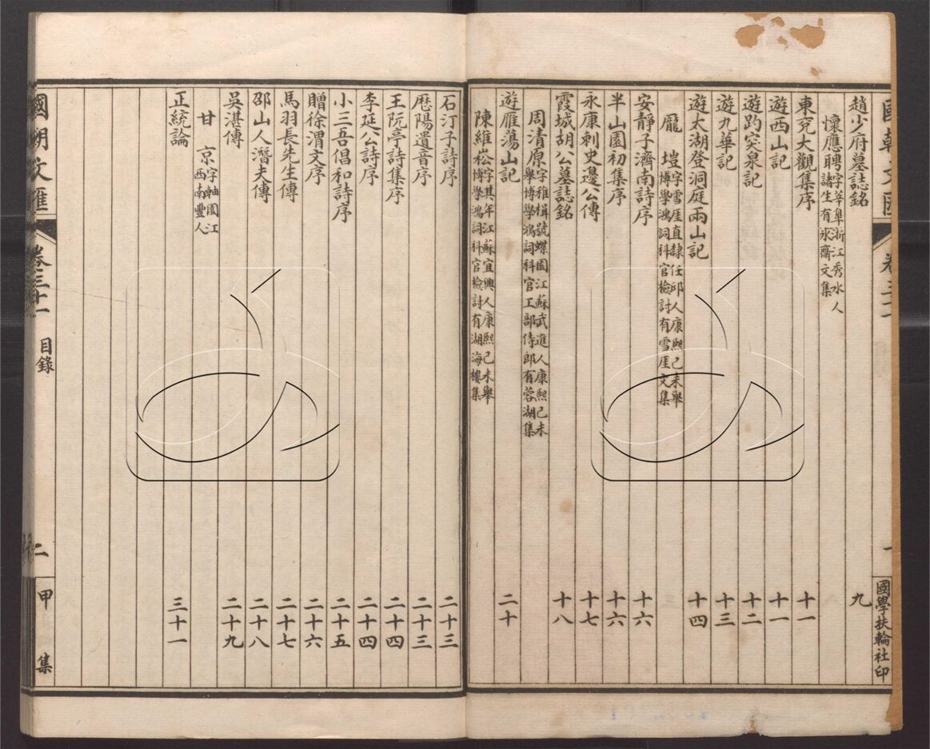 趙少府墓誌銘 九
懷應聘字莘皋浙江秀水人諸生有冰齋文集
東兗大觀集序 十一
遊西山記 十一
遊趵突泉記 十二
遊九華記 十三
遊太湖登洞庭兩山記 十四
龐塏字雪崖直隸任邱人康熙己未舉博學鴻詞科官檢討有雪厓文集
安靜子濟南詩序 十六
半山園初集序 十六
永康刺史邊公傳 十七
霞城胡公墓誌銘 十八
周清原字雅楫號蝶園江蘇武進人康熙己未舉博學鴻詞科官工部侍郎有蓉湖集
遊雁蕩山記 二十
陳維崧字其年江蘇宜興人康熙己未舉博學鴻詞科官檢討有湖海樓集
國學扶輪社印
石汀子詩序 二十三
歷陽遺音序 二十三
王阮亭詩集序 二十四
李延公詩序 二十四
小三吾倡和詩序 二十五
贈徐渭文序 二十六
馬羽長先生傳 二十七
邵山人潛夫傳 二十八
吳湛傳 二十九
甘京字軸園江西南豐人
正統論 三十一
國朝文匯 卷三十一 目錄 二 甲集